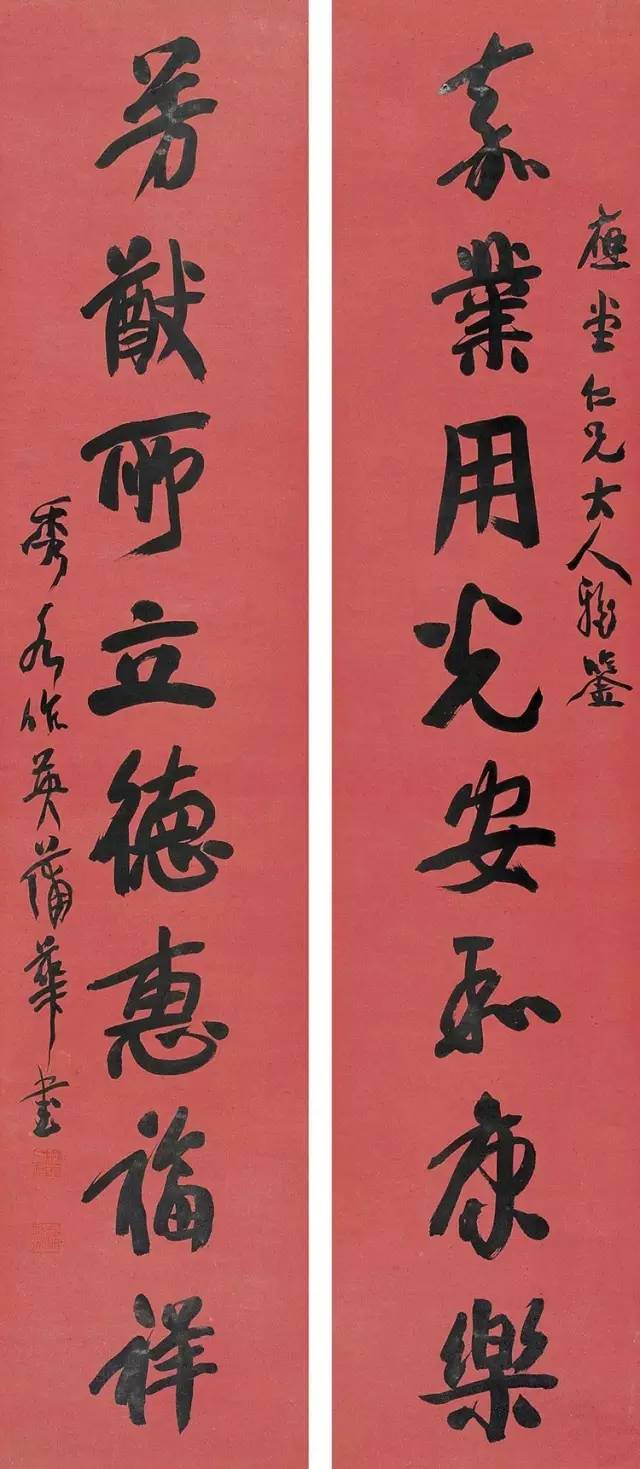 堂仁兄大人雅鑒
嘉業用光安和康樂
芳猷所立德惠福祥
秀水作英蒲華書